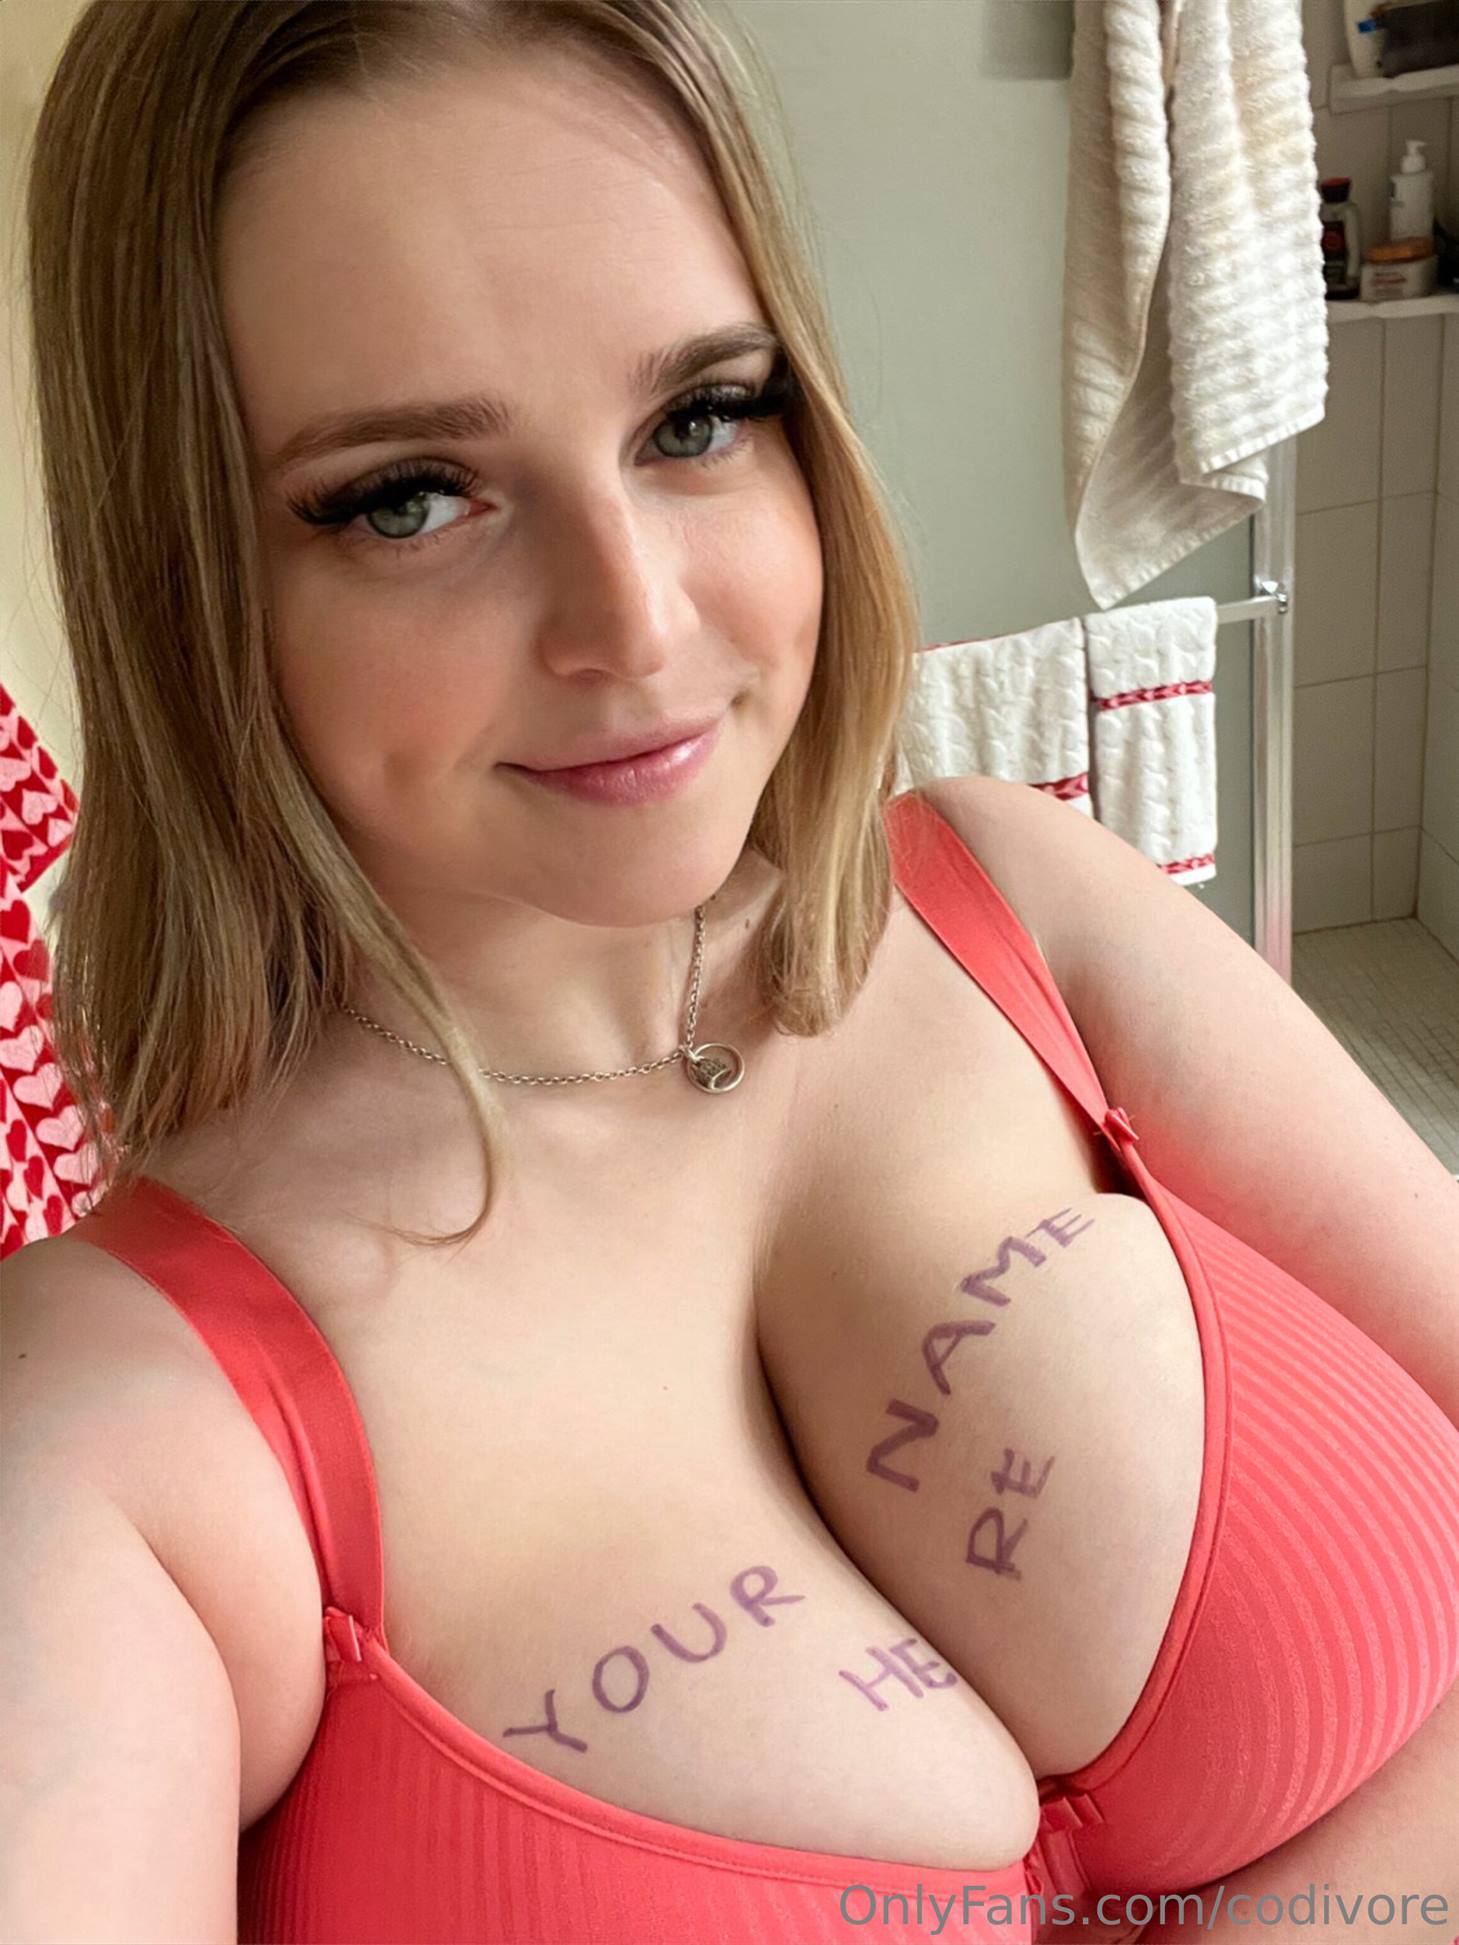 YOUR NAME
HERE
OnlyFans.com/codivore